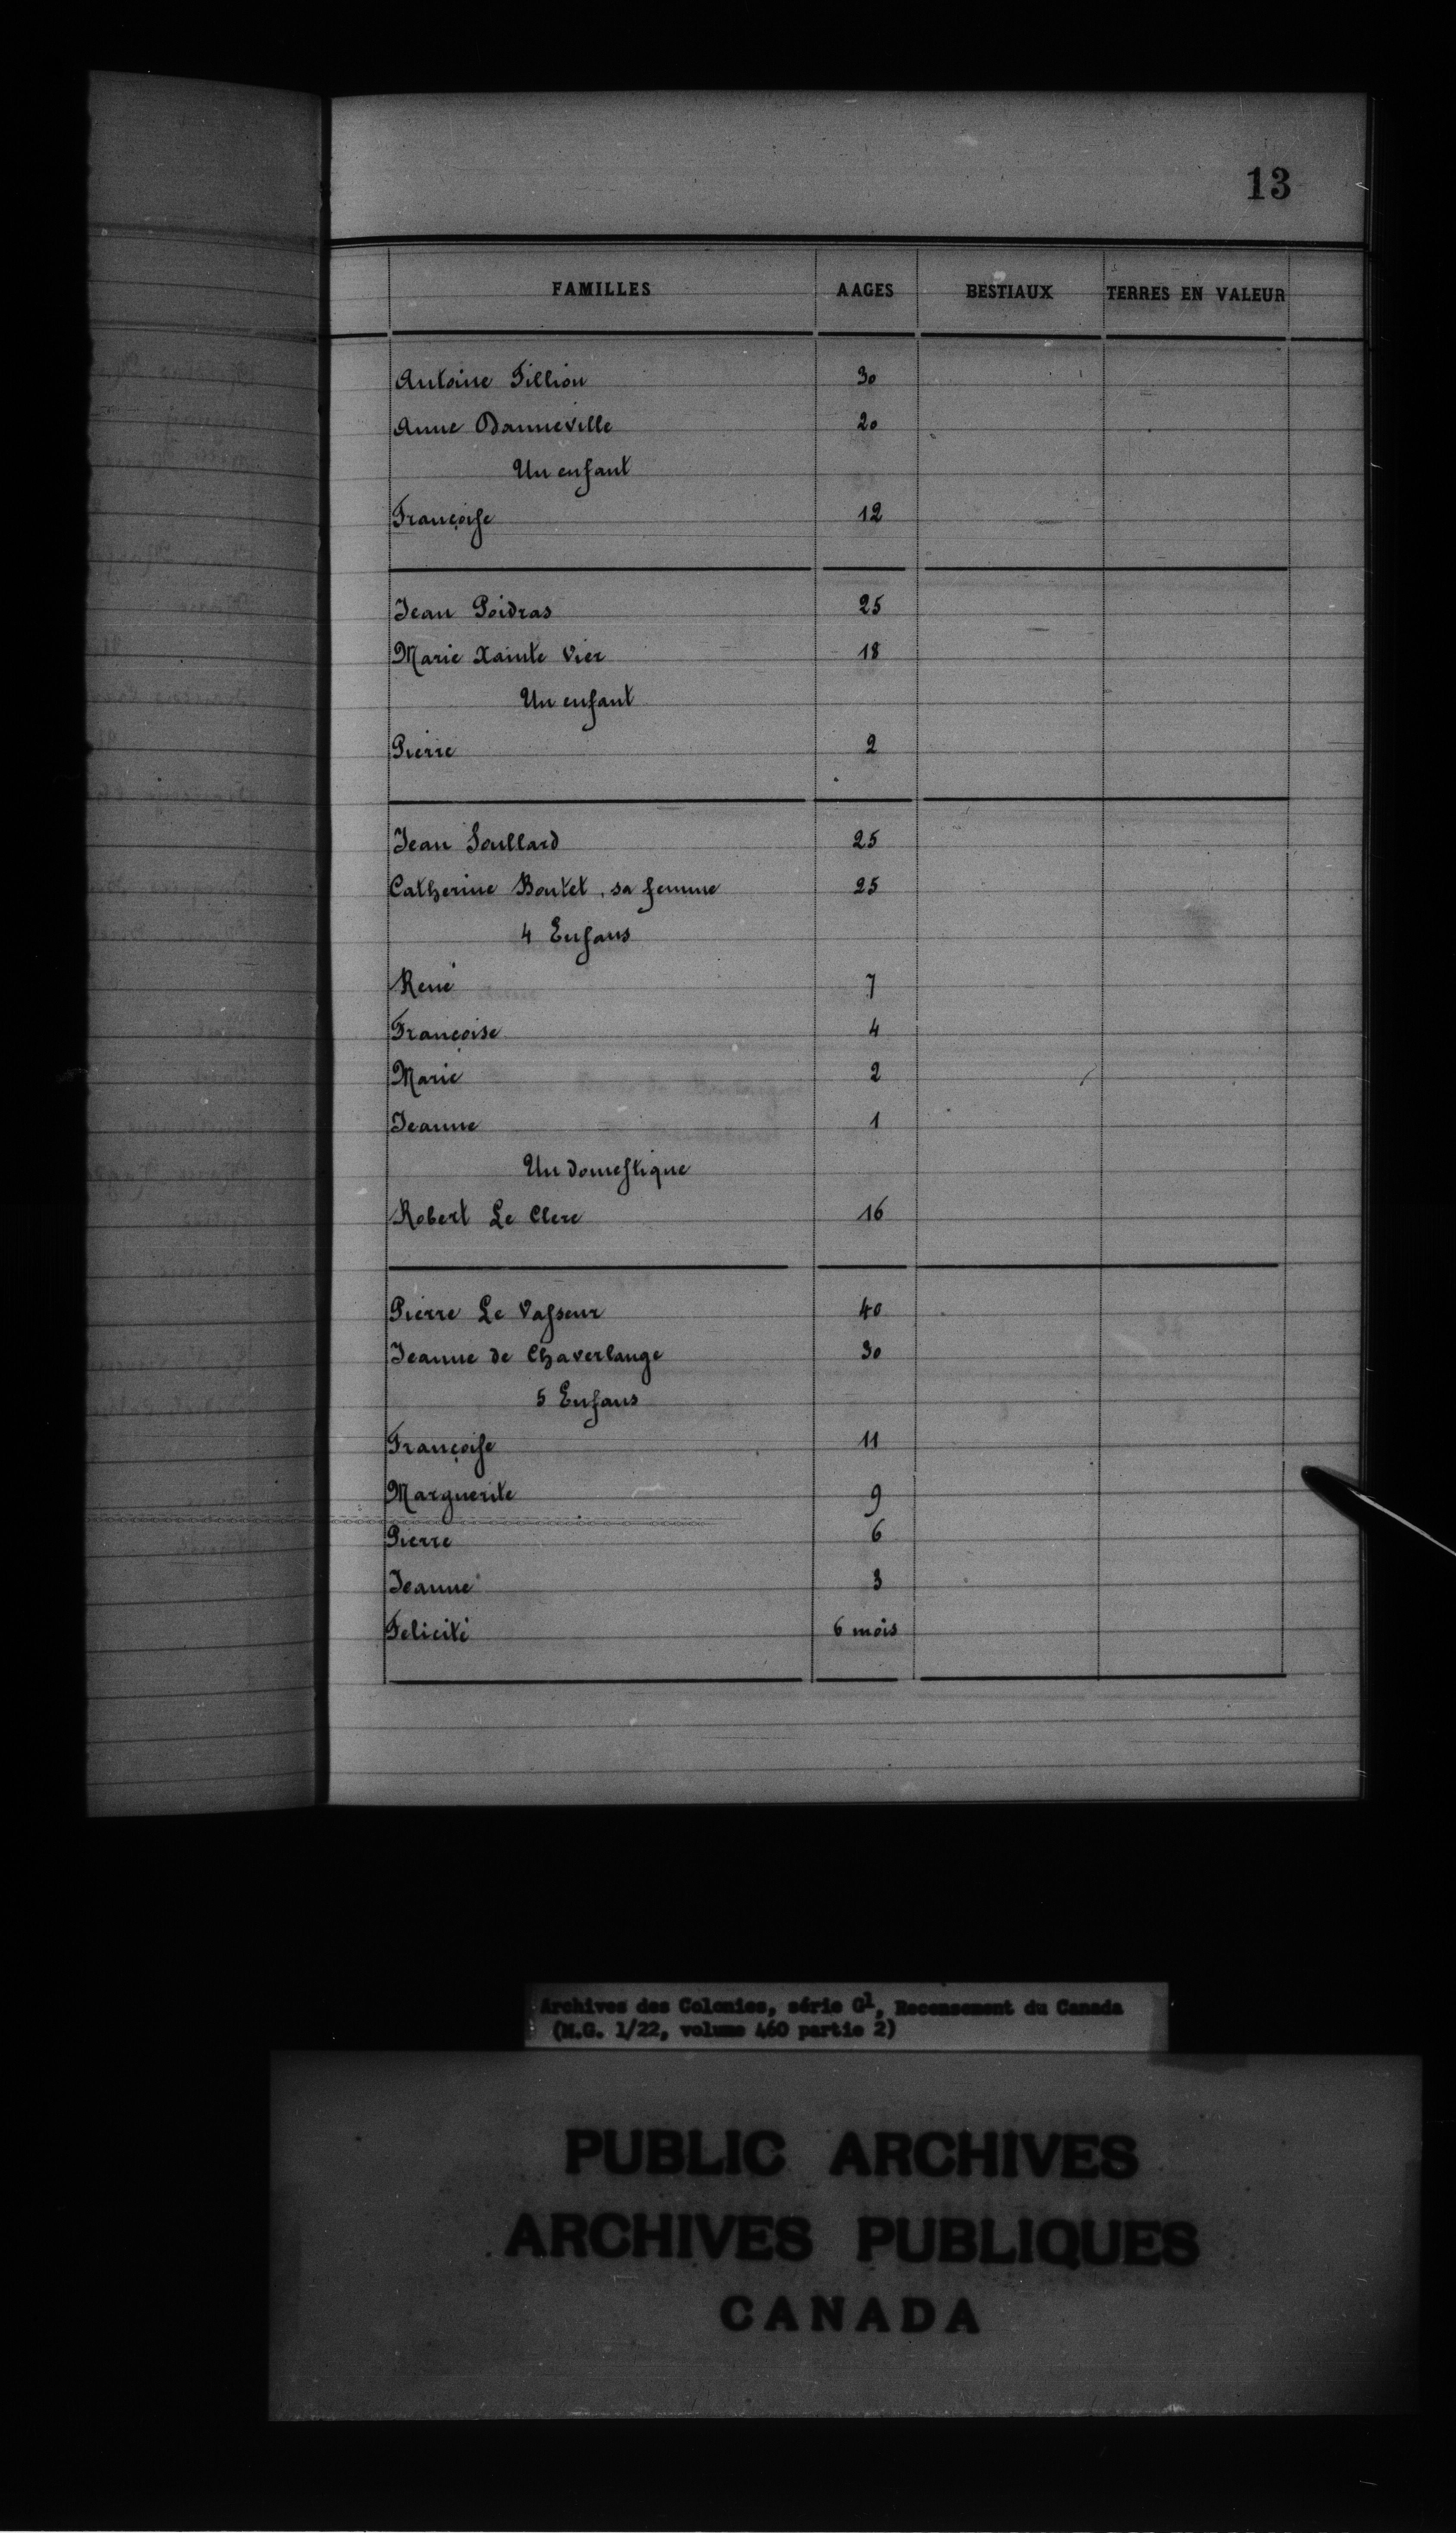 13
FAMILLES AAGES BESTIAUX TERRES EN VALEUR
Antoine Fillion 30
Anne Danneville 20
Un enfant
Françoise 12
Jean Poidras 25
Marie Xainte Vier 18
Un enfant
Pierre 2
Jean Soullard 25
Catherine Boutet, sa femme 25
4 Enfans
René 7
Françoise 4
Marie 2
Jeanne 1
Un domestique
Robert Le Clerc 16
Pierre Le Vasseur 40
Jeanne de Chaverlange 30
5 Enfans
Françoise 11
Marguerite 9
Pierre 6
Jeanne 3
Felicité 6 mois
Archives des Colonies, série G1, Recensement du Canada
(M.G. 1/22, volume 460 partie 2)
PUBLIC ARCHIVES
ARCHIVES PUBLIQUES
CANADA